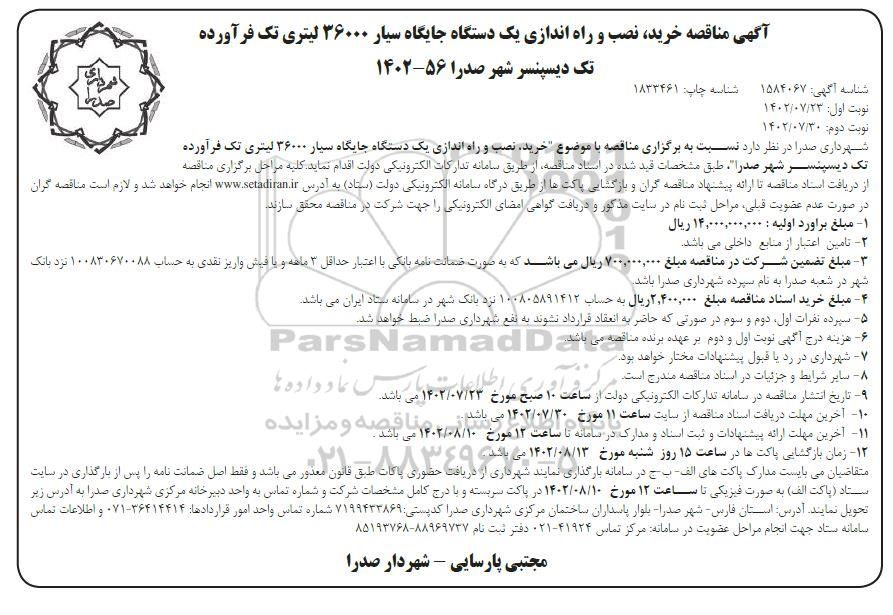 آگهی مناقصه خرید، نصب و راه اندازی یک دستگاه جایگاه سیار ۳۶۰۰۰ لیتری تک فرآورده
تک دیسپنسر شهر صدرا ۵۶-۱۴۰۲
شهرداری صدرا
شناسه آگهی: ۱۵۸۴۰۶۷ شناسه چاپ: ۱۸۳۳۴۶۱
نوبت اول: ۱۴۰۲/۰۷/۲۳
نوبت دوم: ۱۴۰۲/۰۷/۳۰
شهرداری صدرا در نظر دارد نسبت به برگزاری مناقصه با موضوع "خرید، نصب و راه اندازی یک دستگاه جایگاه سیار ۳۶۰۰۰ لیتری تک فرآورده
تک دیسپنسر شهر صدرا"، طبق مشخصات قید شده در اسناد مناقصه، از طریق سامانه تدارکات الکترونیکی دولت اقدام نماید.کلیه مراحل برگزاری مناقصه
از دریافت اسناد مناقصه تا ارائه پیشنهاد مناقصه گران و بازگشایی پاکت ها از طریق درگاه سامانه الکترونیکی دولت (ستاد) به آدرس www.setadiran.ir انجام خواهد شد و لازم است مناقصه گران
در صورت عدم عضویت قبلی، مراحل ثبت نام در سایت مذکور و دریافت گواهی امضای الکترونیکی را جهت شرکت در مناقصه محقق سازند.
۱- مبلغ براورد اولیه : ۱۴,۰۰۰,۰۰۰,۰۰۰ ریال
۲- تامین اعتبار از منابع داخلی می باشد.
۳- مبلغ تضمین شرکت در مناقصه مبلغ ۷۰۰,۰۰۰,۰۰۰ ریال می باشد که به صورت ضمانت نامه بانکی با اعتبار حداقل ۳ ماهه و یا فیش واریز نقدی به حساب ۱۰۰۸۳۰۶۷۰۰۸۸ نزد بانک
شهر در شعبه صدرا به نام سپرده شهرداری صدرا باشد.
۴- مبلغ خرید اسناد مناقصه مبلغ ۲,۴۰۰,۰۰۰ریال به حساب ۱۰۰۸۰۵۸۹۱۴۱۲ نزد بانک شهر در سامانه ستاد ایران می باشد.
۵- سپرده نفرات اول، دوم و سوم در صورتی که حاضر به انعقاد قرارداد نشوند به نفع شهرداری صدرا ضبط خواهد شد.
۶- هزینه درج آگهی نوبت اول و دوم بر عهده برنده مناقصه می باشد.
ParsNamadData
۷- شهرداری در رد یا قبول پیشنهادات مختار خواهد بود.
۸- سایر شرایط و جزئیات در اسناد مناقصه مندرج است.
مرکز فرآوری اطلاعات پارس نماد داده ها
۹- تاریخ انتشار مناقصه در سامانه تدارکات الکترونیکی دولت از ساعت ۱۰ صبح مورخ ۱۴۰۲/۰۷/۲۳ می باشد.
۱۰- آخرین مهلت دریافت اسناد مناقصه از سایت ساعت ۱۱ مورخ ۱۴۰۲/۰۷/۳۰ می باشد .
پایگاه اطلاع رسانی مناقصه و مزایده
۱۱- آخرین مهلت ارائه پیشنهادات و ثبت اسناد و مدارک در سامانه تا ساعت ۱۲ مورخ ۱۴۰۲/۰۸/۱۰ می باشد .
۱۲- زمان بازگشایی پاکت ها در ساعت ۱۵ روز شنبه مورخ ۱۴۰۲/۰۸/۱۳ می باشد .
متقاضیان می بایست مدارک پاکت های الف- ب-ج در سامانه بارگذاری نمایند شهرداری از دریافت حضوری پاکات طبق قانون معذور می باشد و فقط اصل ضمانت نامه را پس از بارگذاری در سایت
ستاد (پاکت الف) به صورت فیزیکی تا ساعت ۱۲ مورخ ۱۴۰۲/۰۸/۱۰ در پاکت سربسته و با درج کامل مشخصات شرکت و شماره تماس به واحد دبیرخانه مرکزی شهرداری صدرا به آدرس زیر
تحویل نمایند. آدرس: استان فارس- شهر صدرا- بلوار پاسداران ساختمان مرکزی شهرداری صدرا کدپستی:۷۱۹۹۴۳۳۸۶۹ شماره تماس واحد امور قراردادها: ۳۶۴۱۴۴۱۴-۰۷۱ و اطلاعات تماس
سامانه ستاد جهت انجام مراحل عضویت در سامانه: مرکز تماس ۴۱۹۲۴-۰۲۱ دفتر ثبت نام ۸۸۹۶۹۷۳۷-۸۵۱۹۳۷۶۸
مجتبی پارسایی – شهردار صدرا